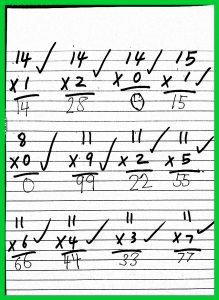 14 ✓ 14 ✓ 14 ✓ 15
x 1 x 2 x 0 x 1 ✓
14 28 0 15
8 11 11 11
x 0 ✓ x 9 ✓ x 2 ✓ x 5 ✓
0 99 22 55
11 11 11 11
x 6 ✓ x 4 ✓ x 3 ✓ x 7 ✓
66 44 33 77